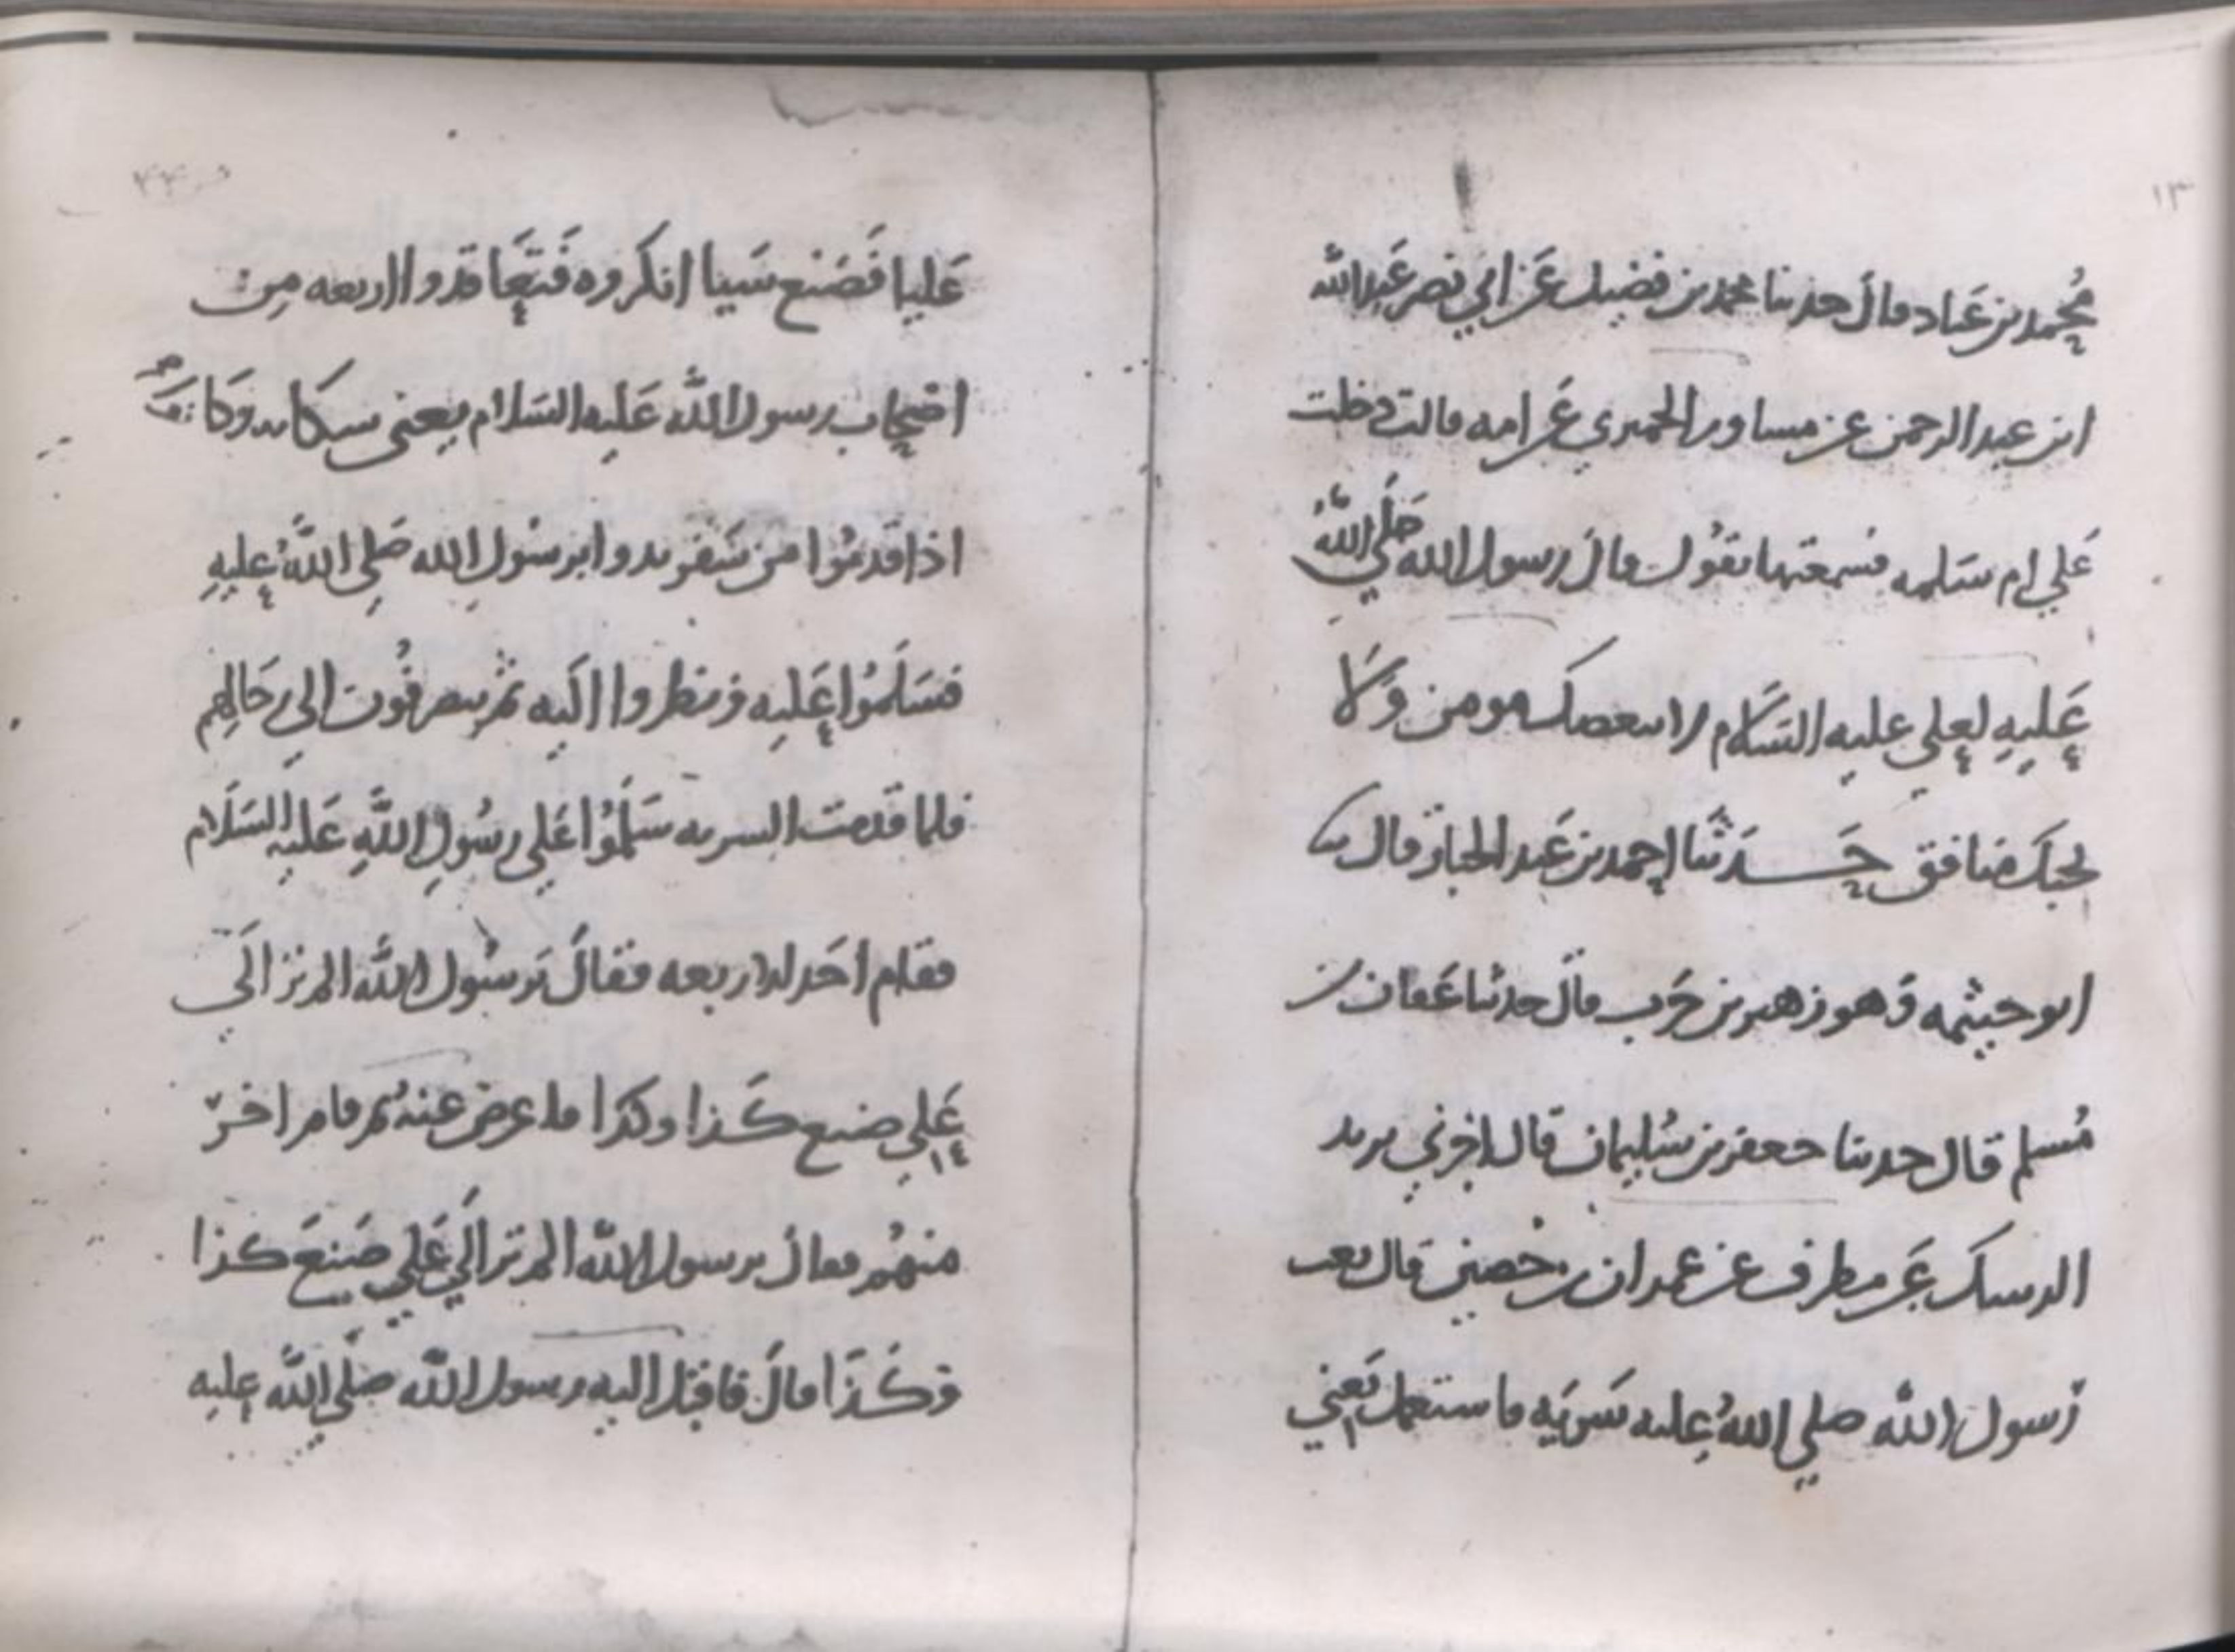 ١٣
مُحمد بن عَباد قال حدثنا محمد بن فضيل عَن ابي نصر عَبد الله
ابن عبد الرحمن عن مساور الحميري عَن امه قالت دخلت
عَلي ام سَلمه فسمعتها تقُول قال رسول الله صَلَّي اللهُ
عَليهِ لعلي عليه السَّلام لا يبغضك مومن وَلا
يحبكَ منافق حَدثنا احمد بن عَبد الجبار قال نا
ابو خيثمه وَهو زهير بن حَرب قالَ حدثنا عَفان بن
مُسلم قال حدثنا جعفر بن سُليمان قال اخبرني يريد
الرسك عَن مطرف عن عمران بن حُصين قال بعث
رَسول الله صلي اللهُ عليه سَريَه فاستعمل يَعني
عَليا فَصَنع شَيا انكروه فَتعَاقدوا اربعه مِن
اصحاب رسول الله عَليه السَلام يعني وَكَانوا
اذا قدمُوا من سَفر بدوا برسُول الله صَلي اللَّهُ عليهِ
فسَلمُوا عَليه ونظروا اليه ثم ينصرفُون الي رحَالهم
فلما قدمت السريه سَلمُوا عَلي رسُولِ اللَّهِ عَليه السَلَام
فقام احَد الاربعه فقالَ يَرسُول اللَّه الم تر الَي
عَلي صنع كَذا وكذا فاعرض عنهُ ثم قام اخر
منهُم فقال يرسول الله الم تر الَي عَلي صَنعَ كَذا
وَكَذَا قالَ فاقبل اليه رسول الله صَلي اللَّه عليه